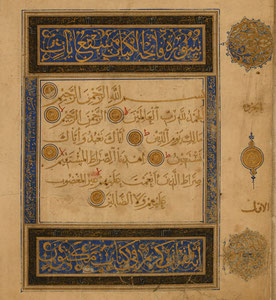 سورة فاتحة الكتاب سبع آيات
بسم الله الرحمن الرحيم
الحمد لله رب العالمين الرحمن الرحيم
مالك يوم الدين اياك نعبد واياك
نستعين اهدنا الصراط المستقيم
صراط الذين انعمت عليهم غير المغضوب
عليهم ولا الضالين
انه لقرآن كريم في كتاب مكنون